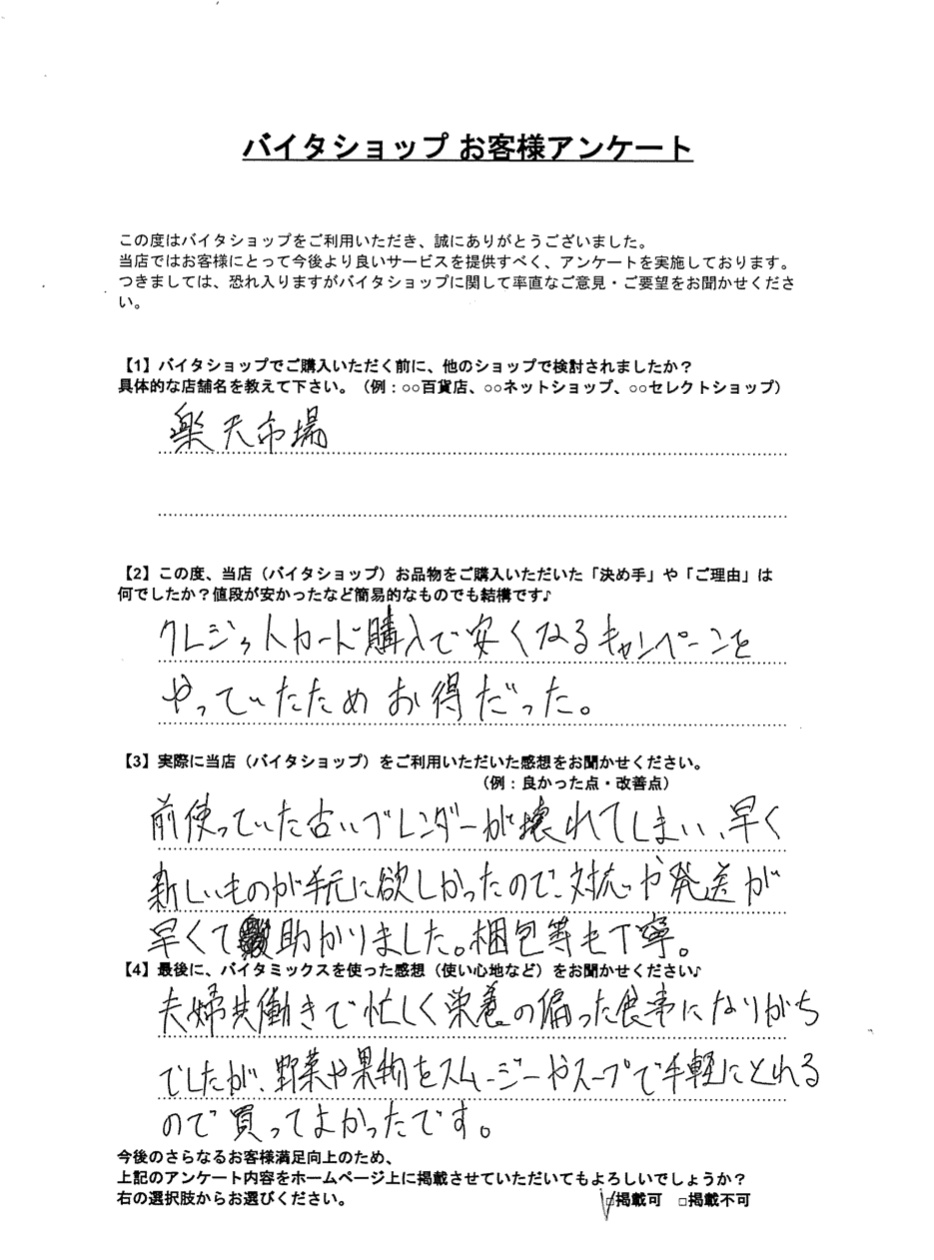 バイタショップ お客様アンケート
この度はバイタショップをご利用いただき、誠にありがとうございました。
当店ではお客様にとって今後より良いサービスを提供すべく、アンケートを実施しております。
つきましては、恐れ入りますがバイタショップに関して率直なご意見・ご要望をお聞かせくださ
い。
【1】バイタショップでご購入いただく前に、他のショップで検討されましたか？
具体的な店舗名を教えて下さい。（例：○○百貨店、○○ネットショップ、○○セレクトショップ）
楽天市場
【2】この度、当店（バイタショップ）お品物をご購入いただいた「決め手」や「ご理由」は
何でしたか？値段が安かったなど簡易的なものでも結構です♪
クレジットカード購入で安くなるキャンペーンを
やっていたためお得だった。
【3】実際に当店（バイタショップ）をご利用いただいた感想をお聞かせください。
（例：良かった点・改善点）
前使っていた古いブレンダーが壊れてしまい、早く
新しいものが手元に欲しかったので、対応や発送が
早くて助かりました。梱包等も丁寧。
【4】最後に、バイタミックスを使った感想（使い心地など）をお聞かせください♪
夫婦共働きで忙しく栄養の偏った食事になりがち
でしたが、野菜や果物をスムージーやスープで手軽にとれる
ので買ってよかったです。
今後のさらなるお客様満足向上のため、
上記のアンケート内容をホームページ上に掲載させていただいてもよろしいでしょうか？
右の選択肢からお選びください。 ☑掲載可 □掲載不可